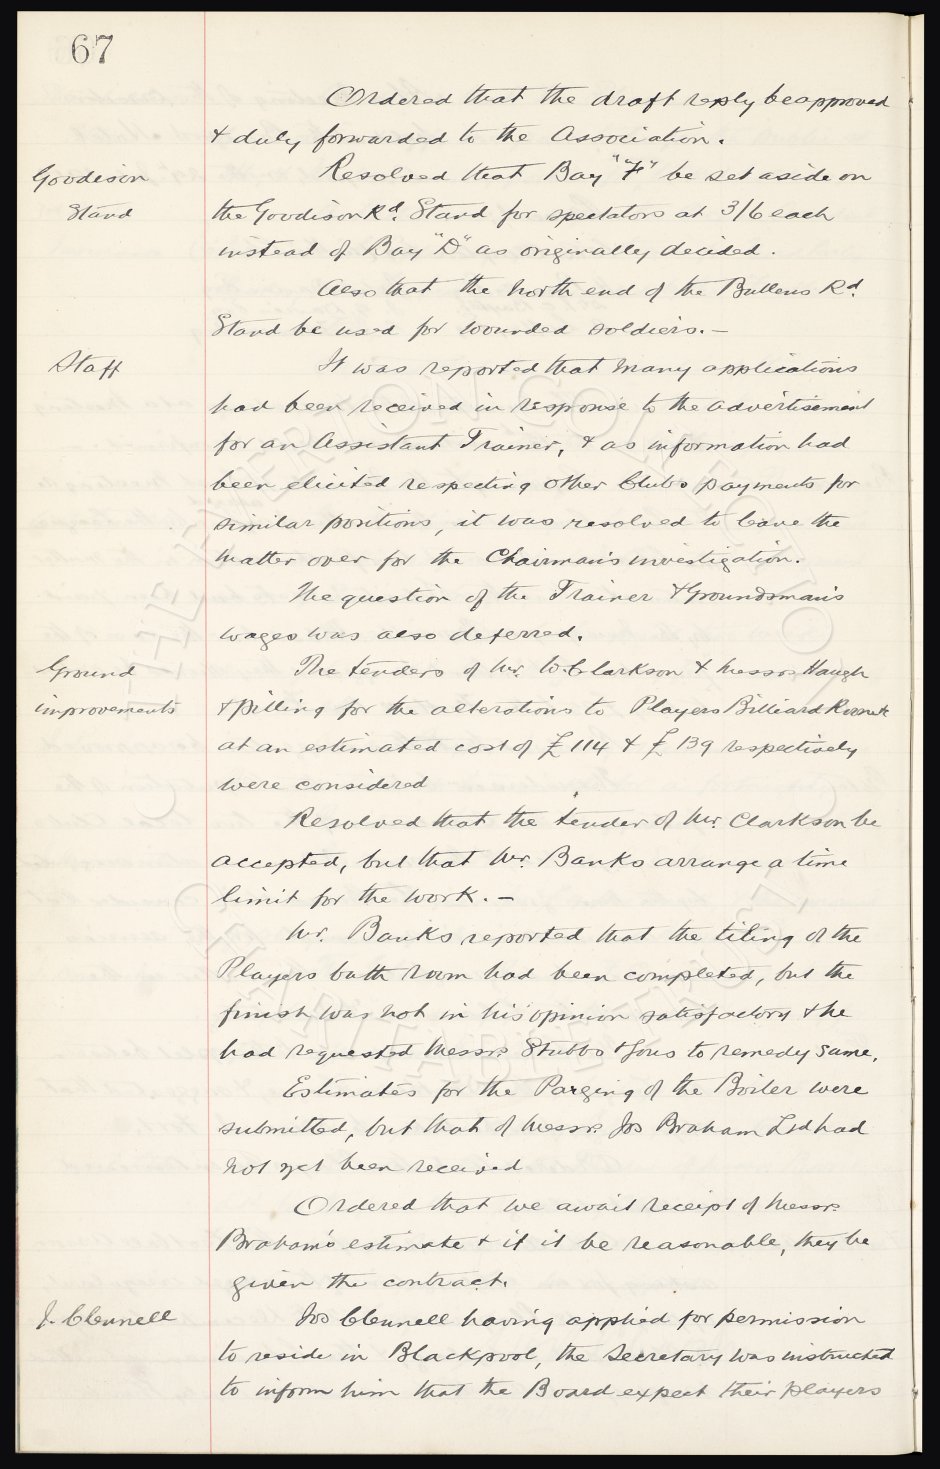 67
Ordered that the draft reply be approved
& duly forwarded to the Association.
Goodison
Stand
Resolved that Bay "F" be set aside on
the Goodison Rd. Stand for spectators at 3/6 each
instead of Bay "D" as originally decided.
Also that the North end of the Bullens Rd.
Stand be used for wounded soldiers. —
Staff
It was reported that many applications
had been received in response to the advertisement
for an Assistant Trainer, & as information had
been elicited respecting other Clubs payments for
similar positions, it was resolved to leave the
matter over for the Chairman's investigation.
The question of the Trainer & Groundsman's
wages was also deferred.
Ground
improvements
The tenders of Mr. W. Clarkson & Messrs Haugh
& Pilling for the alterations to Players Billiard Room &c
at an estimated cost of £114 & £139 respectively
were considered
Resolved that the tender of Mr. Clarkson be
accepted, but that Mr. Banks arrange a time
limit for the work. —
Mr. Banks reported that the tiling of the
Players bath room had been completed, but the
finish was not in his opinion satisfactory & he
had requested Messrs Stubbs & Sons to remedy same.
Estimates for the Parging of the Boiler were
submitted, but that of Messrs Jos Braham Ltd had
not yet been received
Ordered that we await receipt of Messrs
Braham's estimate & if it be reasonable, they be
given the contract.
J. Clennell
Jos Clennell having applied for permission
to reside in Blackpool, the Secretary was instructed
to inform him that the Board expect their players